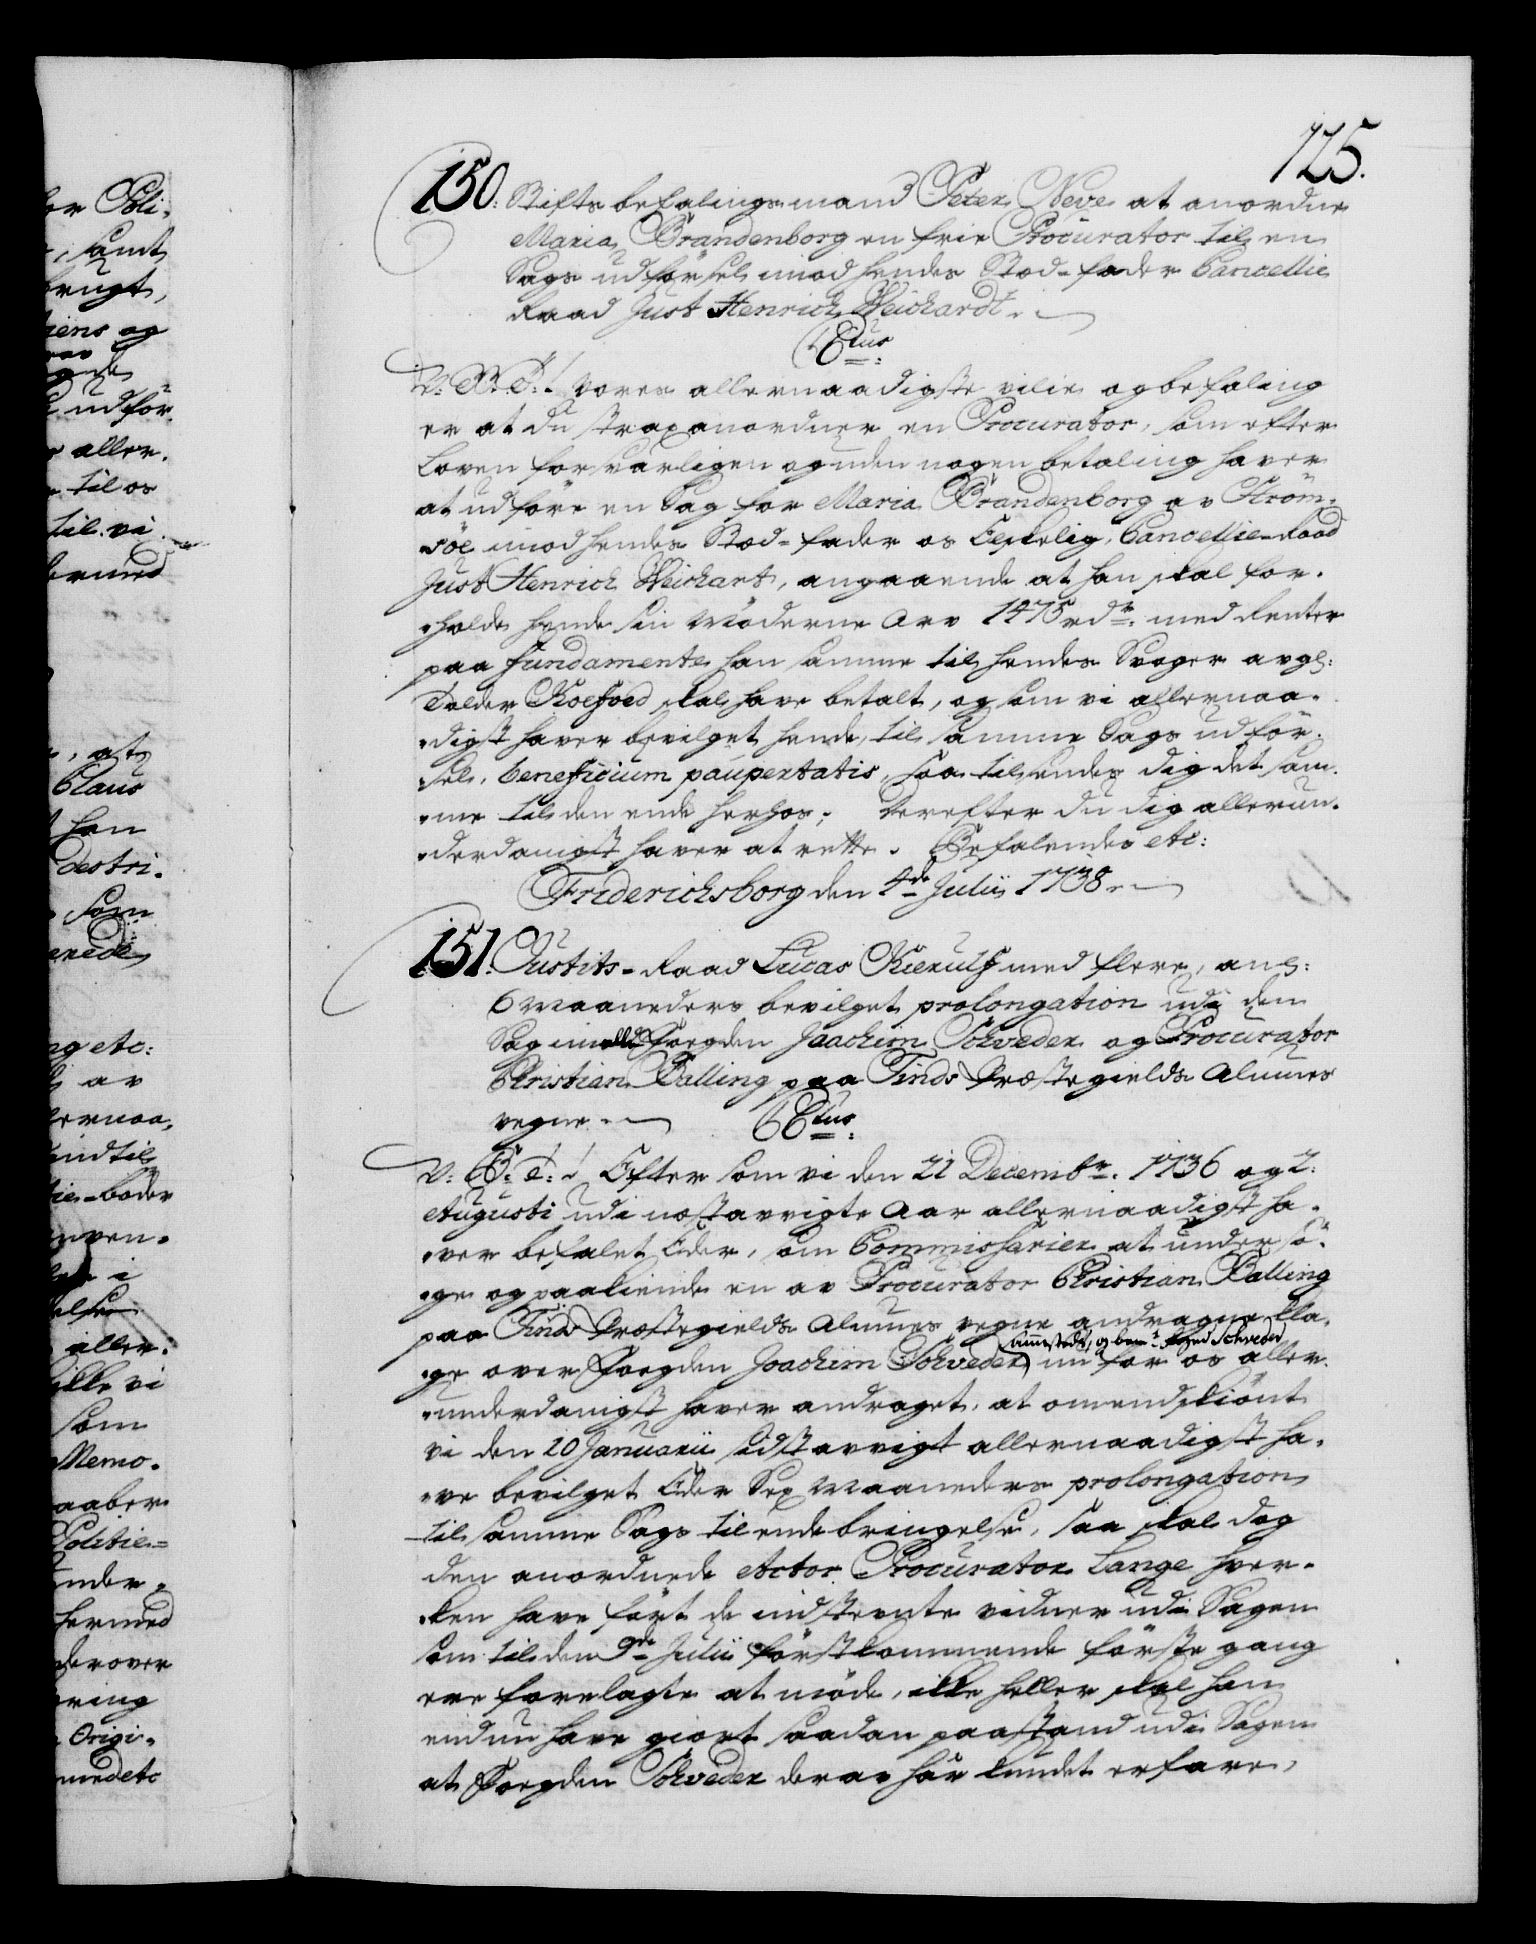 125.
150. Stiftsbefalingsmand Peter Neve at anordne
Maria Brandenborg en frie Procurator til en
Sags udførsel imod hendes Stod-fader Cancellie
Raad Just Henrich Weichardt.
C Xtus
V: G: T: Vores allernaadigste villie og befaling
er at du strax anordner en Procurator, som efter
Loven forsvarligen og uden nogen betaling haver
at udføre en Sag for Maria Brandenborg av Ström-
söe imod hendes Stod-fader os Elskelig, Cancellie-Raad
Just Henrich Weichart, angaaende at han skal for-
holde hende sin Möderne Arv 1475 rdr. med Renter
paa fundamente han samme til hendes Svoger avg:
Tolder Koefoed skal have betalt, og som vi allernaa-
digst haver bevilget hende, til samme Sags udför-
sel, beneficium paupertatis, saa tilsendes dig det sam-
me til den ende herhos; Derefter du dig allerun-
derdanigst haver at rette. Befalendes etc:
Friderichsborg den 4de Julii 1738.
151. Justits-Raad Lucas Kierulf med flere, ang:
6 Maaneders bevilget prolongation udi den
Sag imellem Fogden Joachim Schveder og Procurator
Christian Balling paa Tinds Præstegields Almues
vegne.
C Xtus
V: G: T: Efter som vi den 21 Decembr. 1736 og 2:
Augusti udi næstavvigte Aar allernaadigst ha-
ver befalet Eder, som Commissarier at undersö-
ge og paakiende en av Procurator Christian Balling
paa Tinds Præstegields Almues vegne andragne Kla-
ammesteds, og bem.te Foged Schveder
ge over Fogden Joachim Schveder nu for os aller-
underdanigst haver andraget, at omendskiönt
vi den 20 Januarii sidstavvigt allernaadigst ha-
ve bevilget Eder Sex Maaneders prolongation
til samme Sags tilendebringelse, saa skal dog
den anordnede Actor Procurator Lange hver-
ken have fört de indstevnte vidner udi Sagen
som til den 9de Julii förstkommende förste gang
ere forelagte at möde, ikke heller skal han
endnu have giort saadan paastand udi Sagen
at Fogden Schveder derav har kundet erfare,